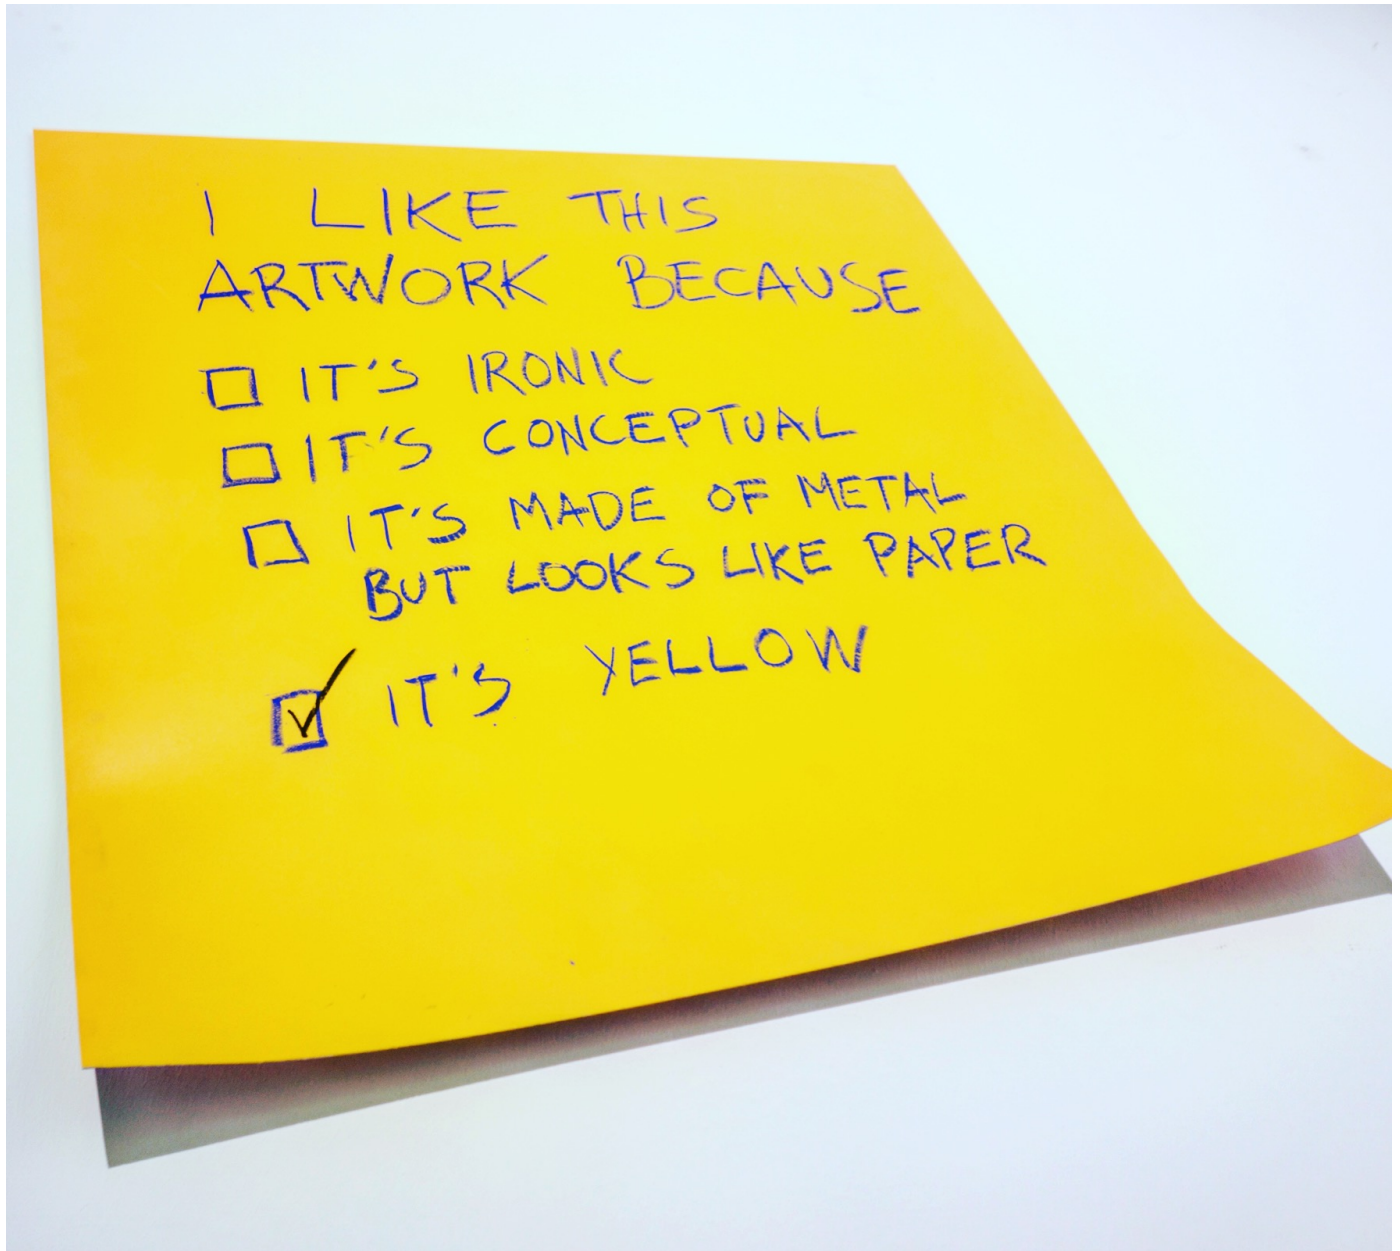 I LIKE THIS
ARTWORK BECAUSE
☐ IT'S IRONIC
☐ IT'S CONCEPTUAL
☐ IT'S MADE OF METAL
BUT LOOKS LIKE PAPER
☑ IT'S YELLOW